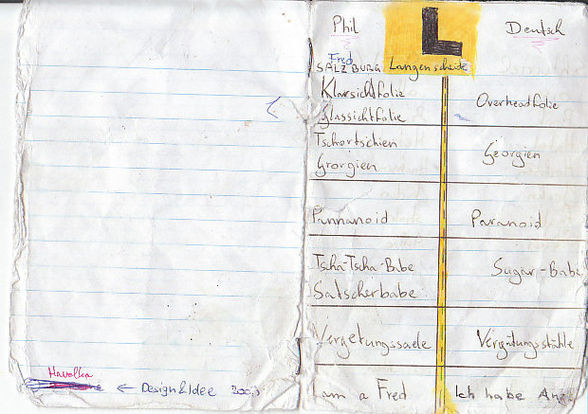 Phil
L
Deutsch
Fred
SALZBURG
Langenscheidt
Klarsichtfolie
Glassichtfolie
Overheadfolie
Tschortschien
Grorgien
Georgien
Pannanoid
Paranoid
Tscha-Tscha-Babe
Satscherbabe
Sugar-Babe
Vergetungssaele
Vergütungsstähle
I am a Fred
Ich habe
Havolka
← Design&Idee